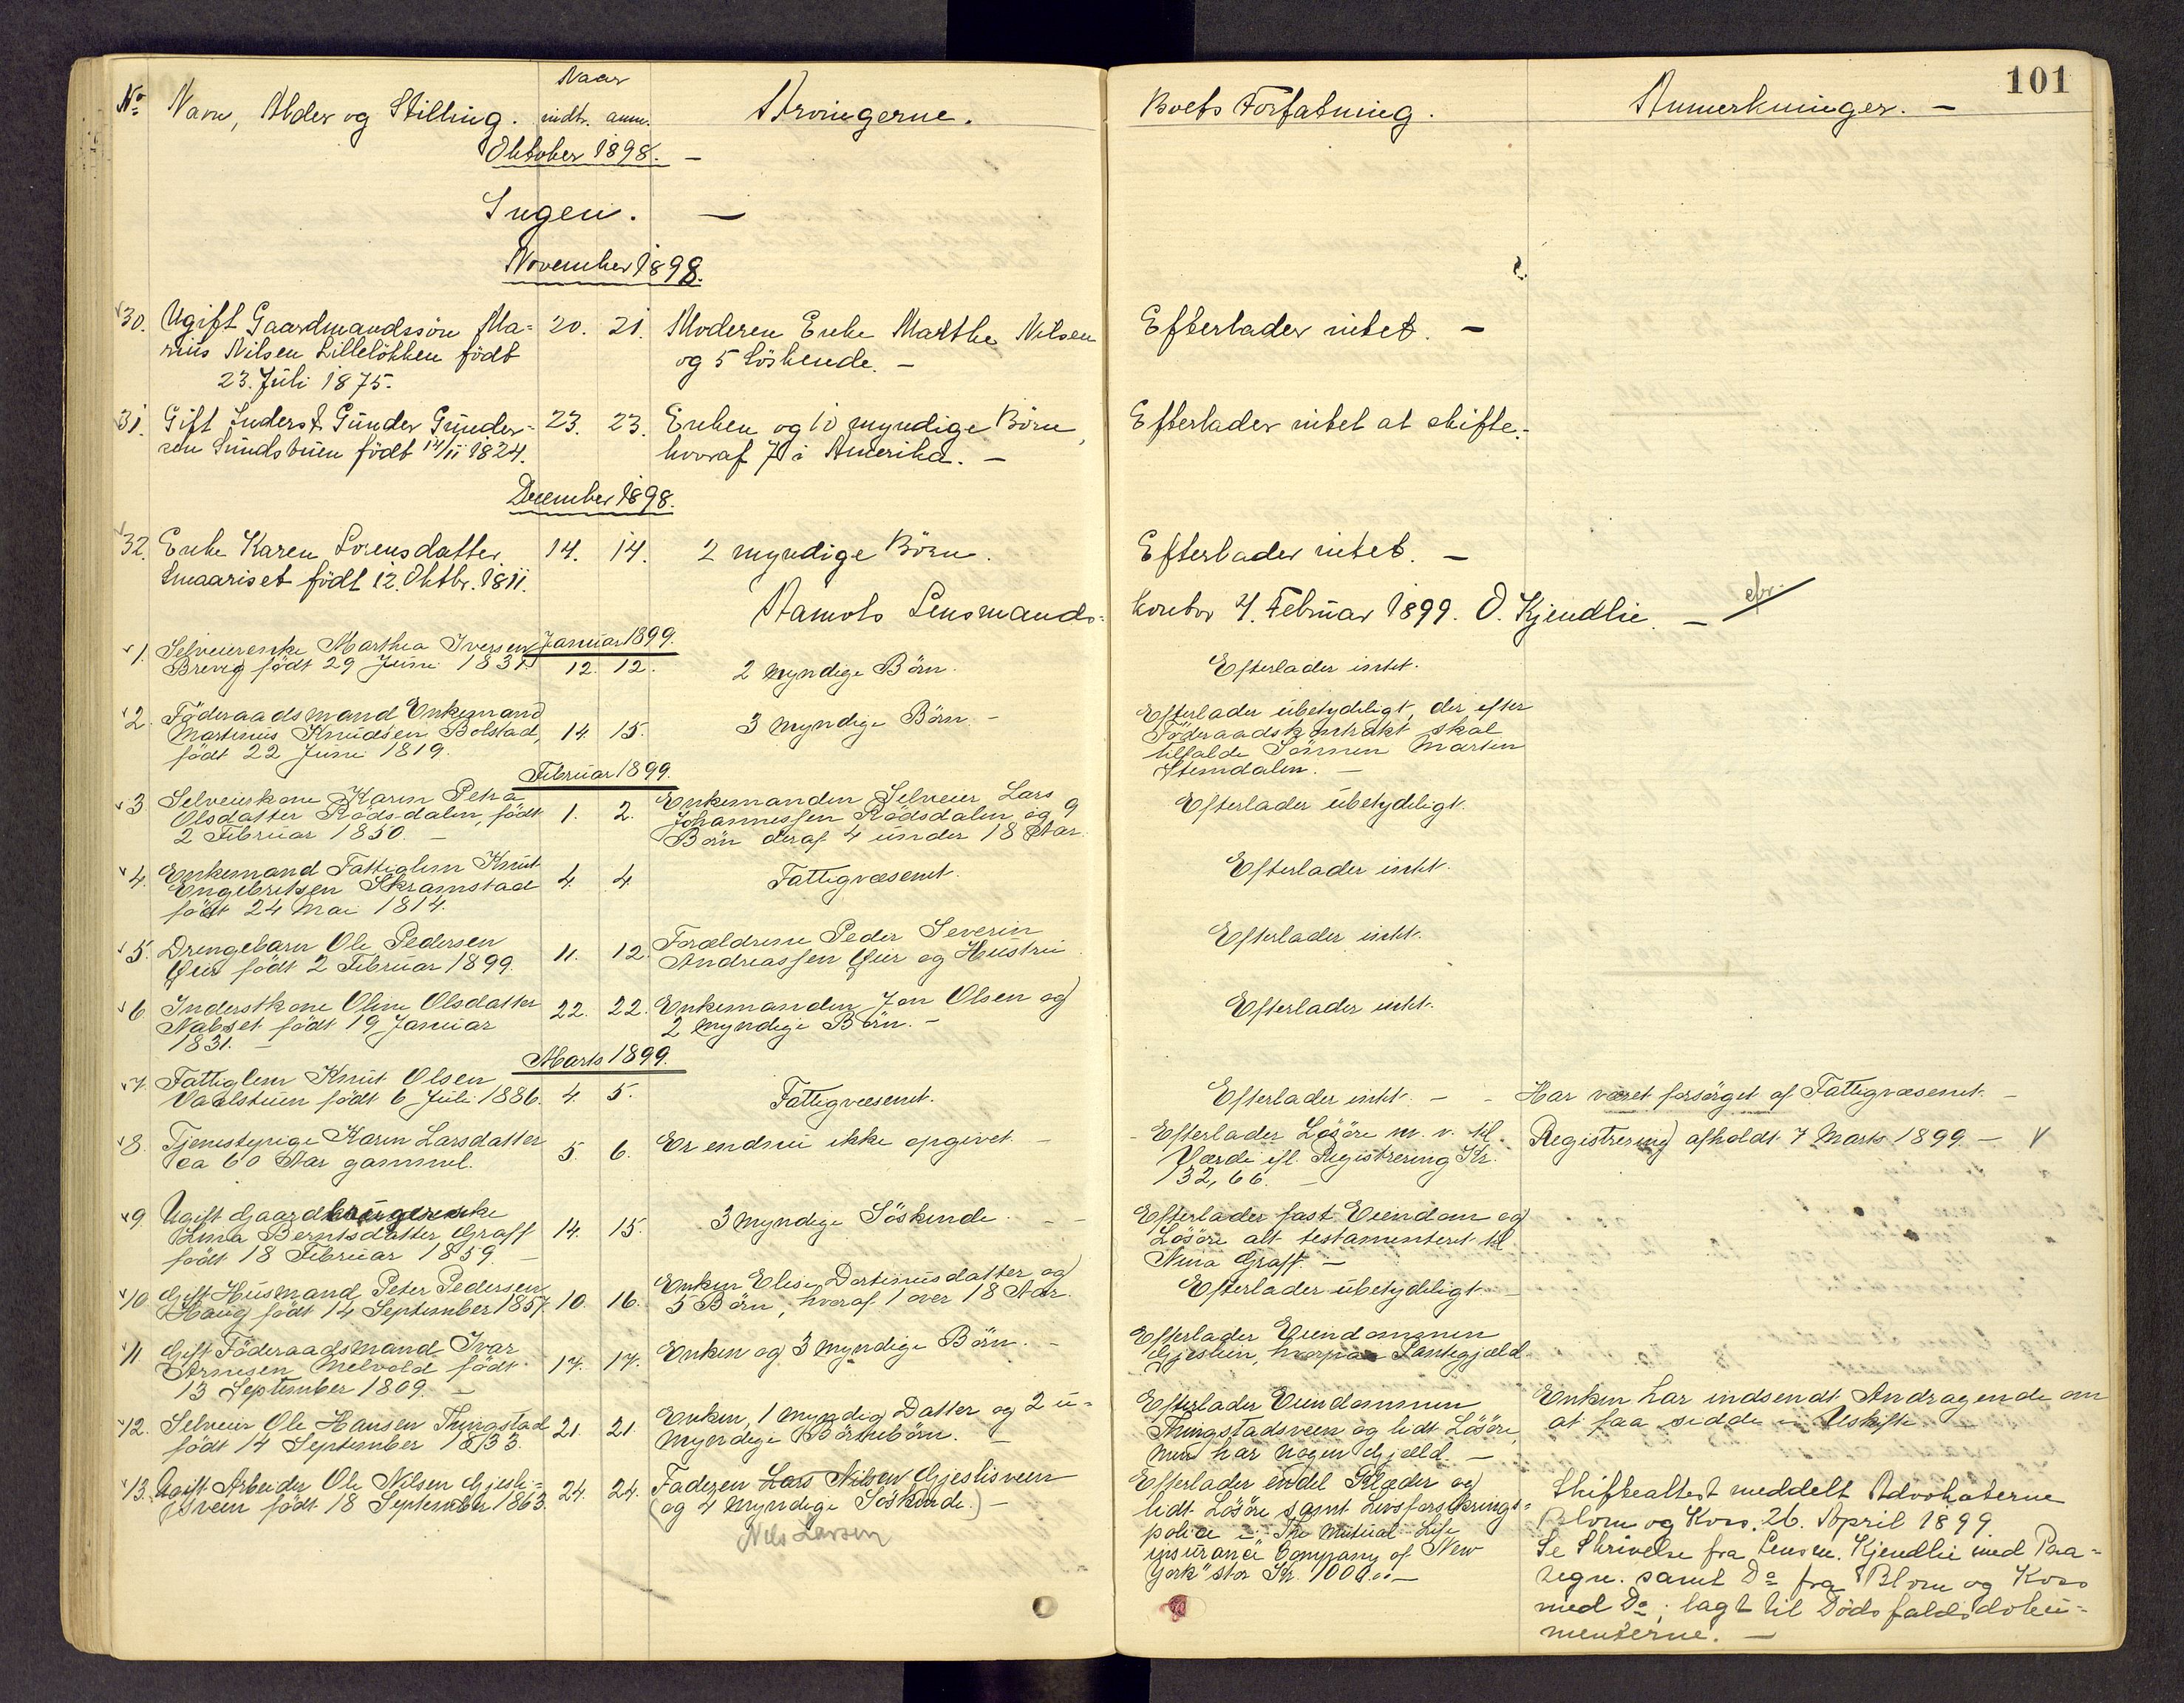 101
No Navn, Alder og Stilling. Naar indtr. anm. Arvingerne. Boets Forfatning. Anmerkninger. —
Oktober 1898. —
Ingen. —
November 1898.
30. Ugift Gaardmandssön Ma= 20. 21. Moderen Enke Marthe Nilsen Efterlader intet. —
rius Nilsen Lillelökken födt og 5 Söskende. —
23. Juli 1875.
31. Gift Inderst Gunder Gunder= 23. 23. Enken og 10 myndige Börn, Efterlader intet at skifte. —
sen Sundstuen födt 14/11 1824. hvoraf 7 i Amerika. —
December 1898.
32. Enke Karen Lorensdatter 14. 14. 2 myndige Börn. Efterlader intet. —
Smaariset födt 12. Oktbr. 1811.
Aamots Lensmands=kontor 4. Februar 1899. O. Kjendlie. —
Januar 1899.
1. Selveierenke Marthea Iversen
Brevig födt 29 Juni 1831 12. 12. 2 Myndige Börn. Efterlader intet.
2. Föderaadsmand Enkemand 3 Myndige Börn. — Efterlader ubetydeligt, der efter
Martinus Knudsen Bolstad, 14. 15. Föderaadskontrakt skal
födt 22 Juni 1819. tilfalde Sönnen Martin
Stemdalen. —
Februar 1899.
3. Selveierkone Karen Petra Enkemanden Selveier Lars Efterlader ubetydeligt.
Olsdatter Rödsdalen, födt 1. 2. Johannessen Rödsdalen og 9
2 Februar 1850. — Börn deraf 4 under 18 Aar.
4. Enkemand Fattiglem Knut 4. 4. Fattigvæsenet. Efterlader intet.
Engebretsen Skramstad
födt 24 Mai 1814.
5. Drengebarn Ole Pedersen 11. 12. Forældrene Peder Severin Efterlader intet.
födt 2 Februar 1899. Andreassen og Hustru
6. Inderstkone Oline Olsdatter 22. 22. Enkemanden Jon Olsen og Efterlader intet.
Nabset födt 19 Januar 2 Myndige Börn. —
1831. —
Marts 1899.
7. Fattiglem Knut Olsen 4. 5. Fattigvæsenet. Efterlader intet. — Har været forsörget af Fattigvæsenet. —
Vaalstuen födt 6 Juli 1886.
8. Tjenestepige Karen Larsdatter 5. 6. Er endnu ikke opgivet. — Efterlader Lösöre m. v. til Registrering afholdt 7 Marts 1899 —
ca 60 Aar gammel. Værdi efl. Registrering Kr.
132,66. —
9. Ugift Gaardbrugerenke 14. 15. 3 Myndige Söskende. — Efterlader fast Eiendom og
Berntsdatter Graff Lösöre alt testamenteret til
födt 18 Februar 1859. — Nina Graff. —
10. Gift Husmand Peter Pedersen 10. 16. Enken Elise Dortinusdatter og Efterlader ubetydeligt. —
Haug födt 14 September 1857. 5 Börn, hvoraf 1 over 18 Aar.
11. Gift Föderaadsmand Ivar 17. 17. Enken og 3 Myndige Börn. — Efterlader Eiendommen
Arnesen Melvold födt hvorpaa Pantegjæld
13 September 1809. —
12. Selveier Ole Hansen Thingstad 21. 21. Enken, 1 Myndig Datter og 2 u= Efterlader Eiendommen Enken har indsendt Andragende om
födt 14 September 1833. Myndige Börnebörn. — Thingstadsveen og lidt Lösöre, at faa sidde i Uskifte
men har nogen Gjæld. —
13. Ugift Arbeider Ole Nilsen Gjesli= 24. 24. Faderen Lars Nilsen Gjeslisveen Efterlader endel Klæder og Skifteattest meddelt Advokaterne
sveen födt 18 September 1863. (og 4 Myndige Söskende.) — lidt Lösöre samt Livsforsikrings= Blom og Koss. 26. April 1899.
Nils Larsen police i "The Mutual Life Se Skrivelse fra Lensm. Kjendlie med Paa=
insurance Company of New tegn. samt Do fra Blom og Koss
York" stor Kr. 1000.00 — med Do; lagt til Dödsfaldsdoku=
menterne. —